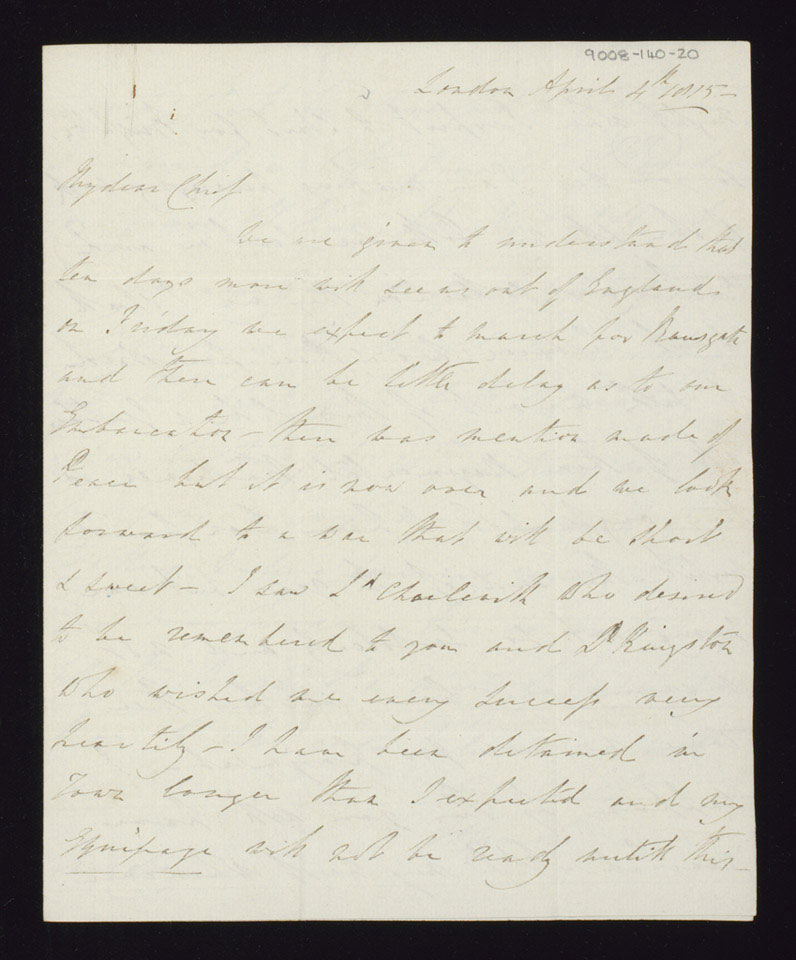 9008-140-20
London April 4th 1815 -
My dear Chief
We are given to understand that
ten days more will see us out of England
on Friday we expect to march for Ramsgate
and there can be little delay as to our
Embarcation - there was mention made of
Peace but it is now over and we look
forward to a war that will be short
& sweet - I saw Ld who desired
to be remembered to you and Ld Kingston
who wished me every success very
heartily - I have been detained in
Town longer than I expected and my
Equipage will not be ready untill this -